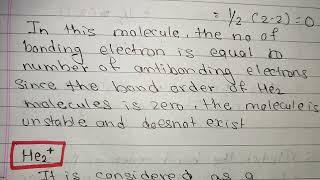 = 1/2 (2-2) = 0
In this molecule, the no of
bonding electron is equal to
number of antibonding electrons
Since the bond order of He2
molecules is zero, the molecule is
unstable and doesnot exist
He2+
It is considered as a